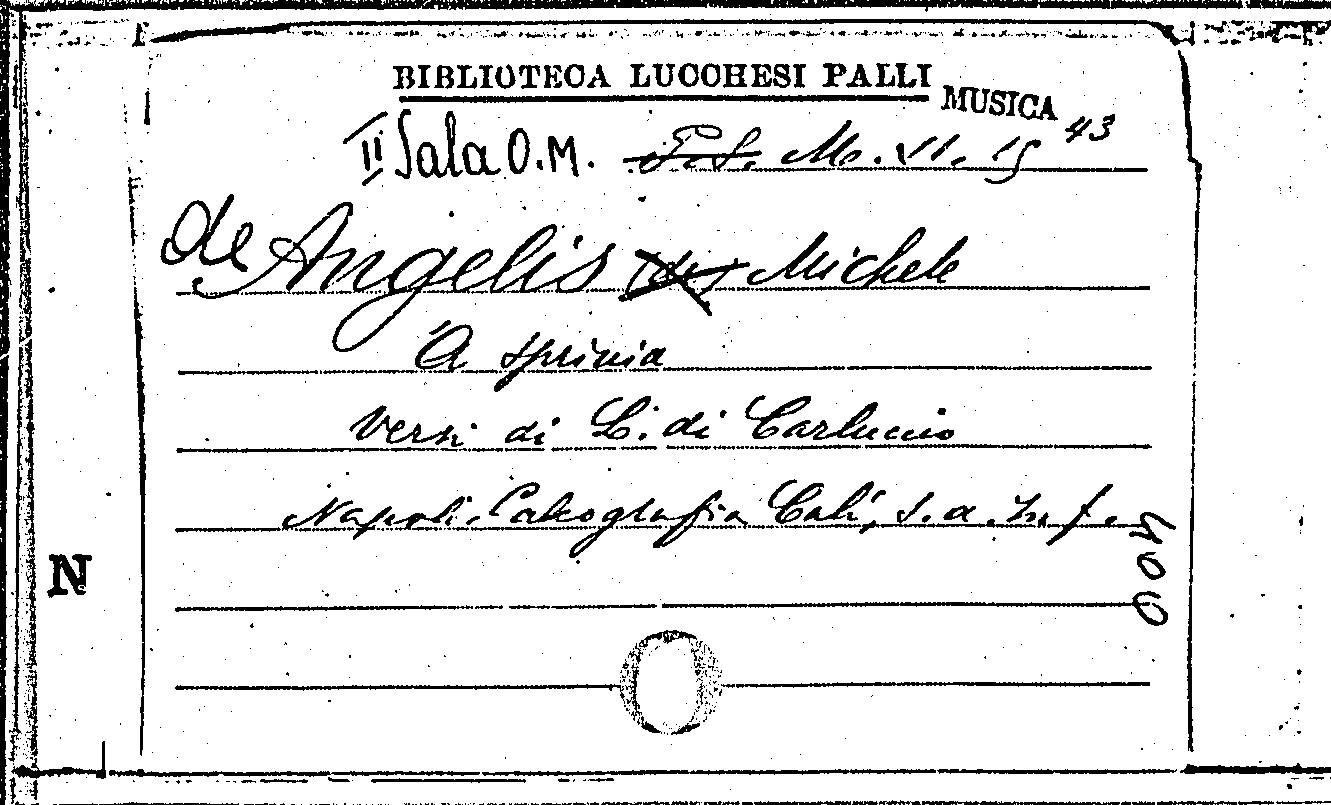 BIBLIOTECA LUCCHESI PALLI
MUSICA
II Sala O.M. M. VI. 15 43
de Angelis (de) Michele
'A sprivia
Versi di L. di Carluccio
Napoli. Calcografia Calì, s.a. In f.
900
N